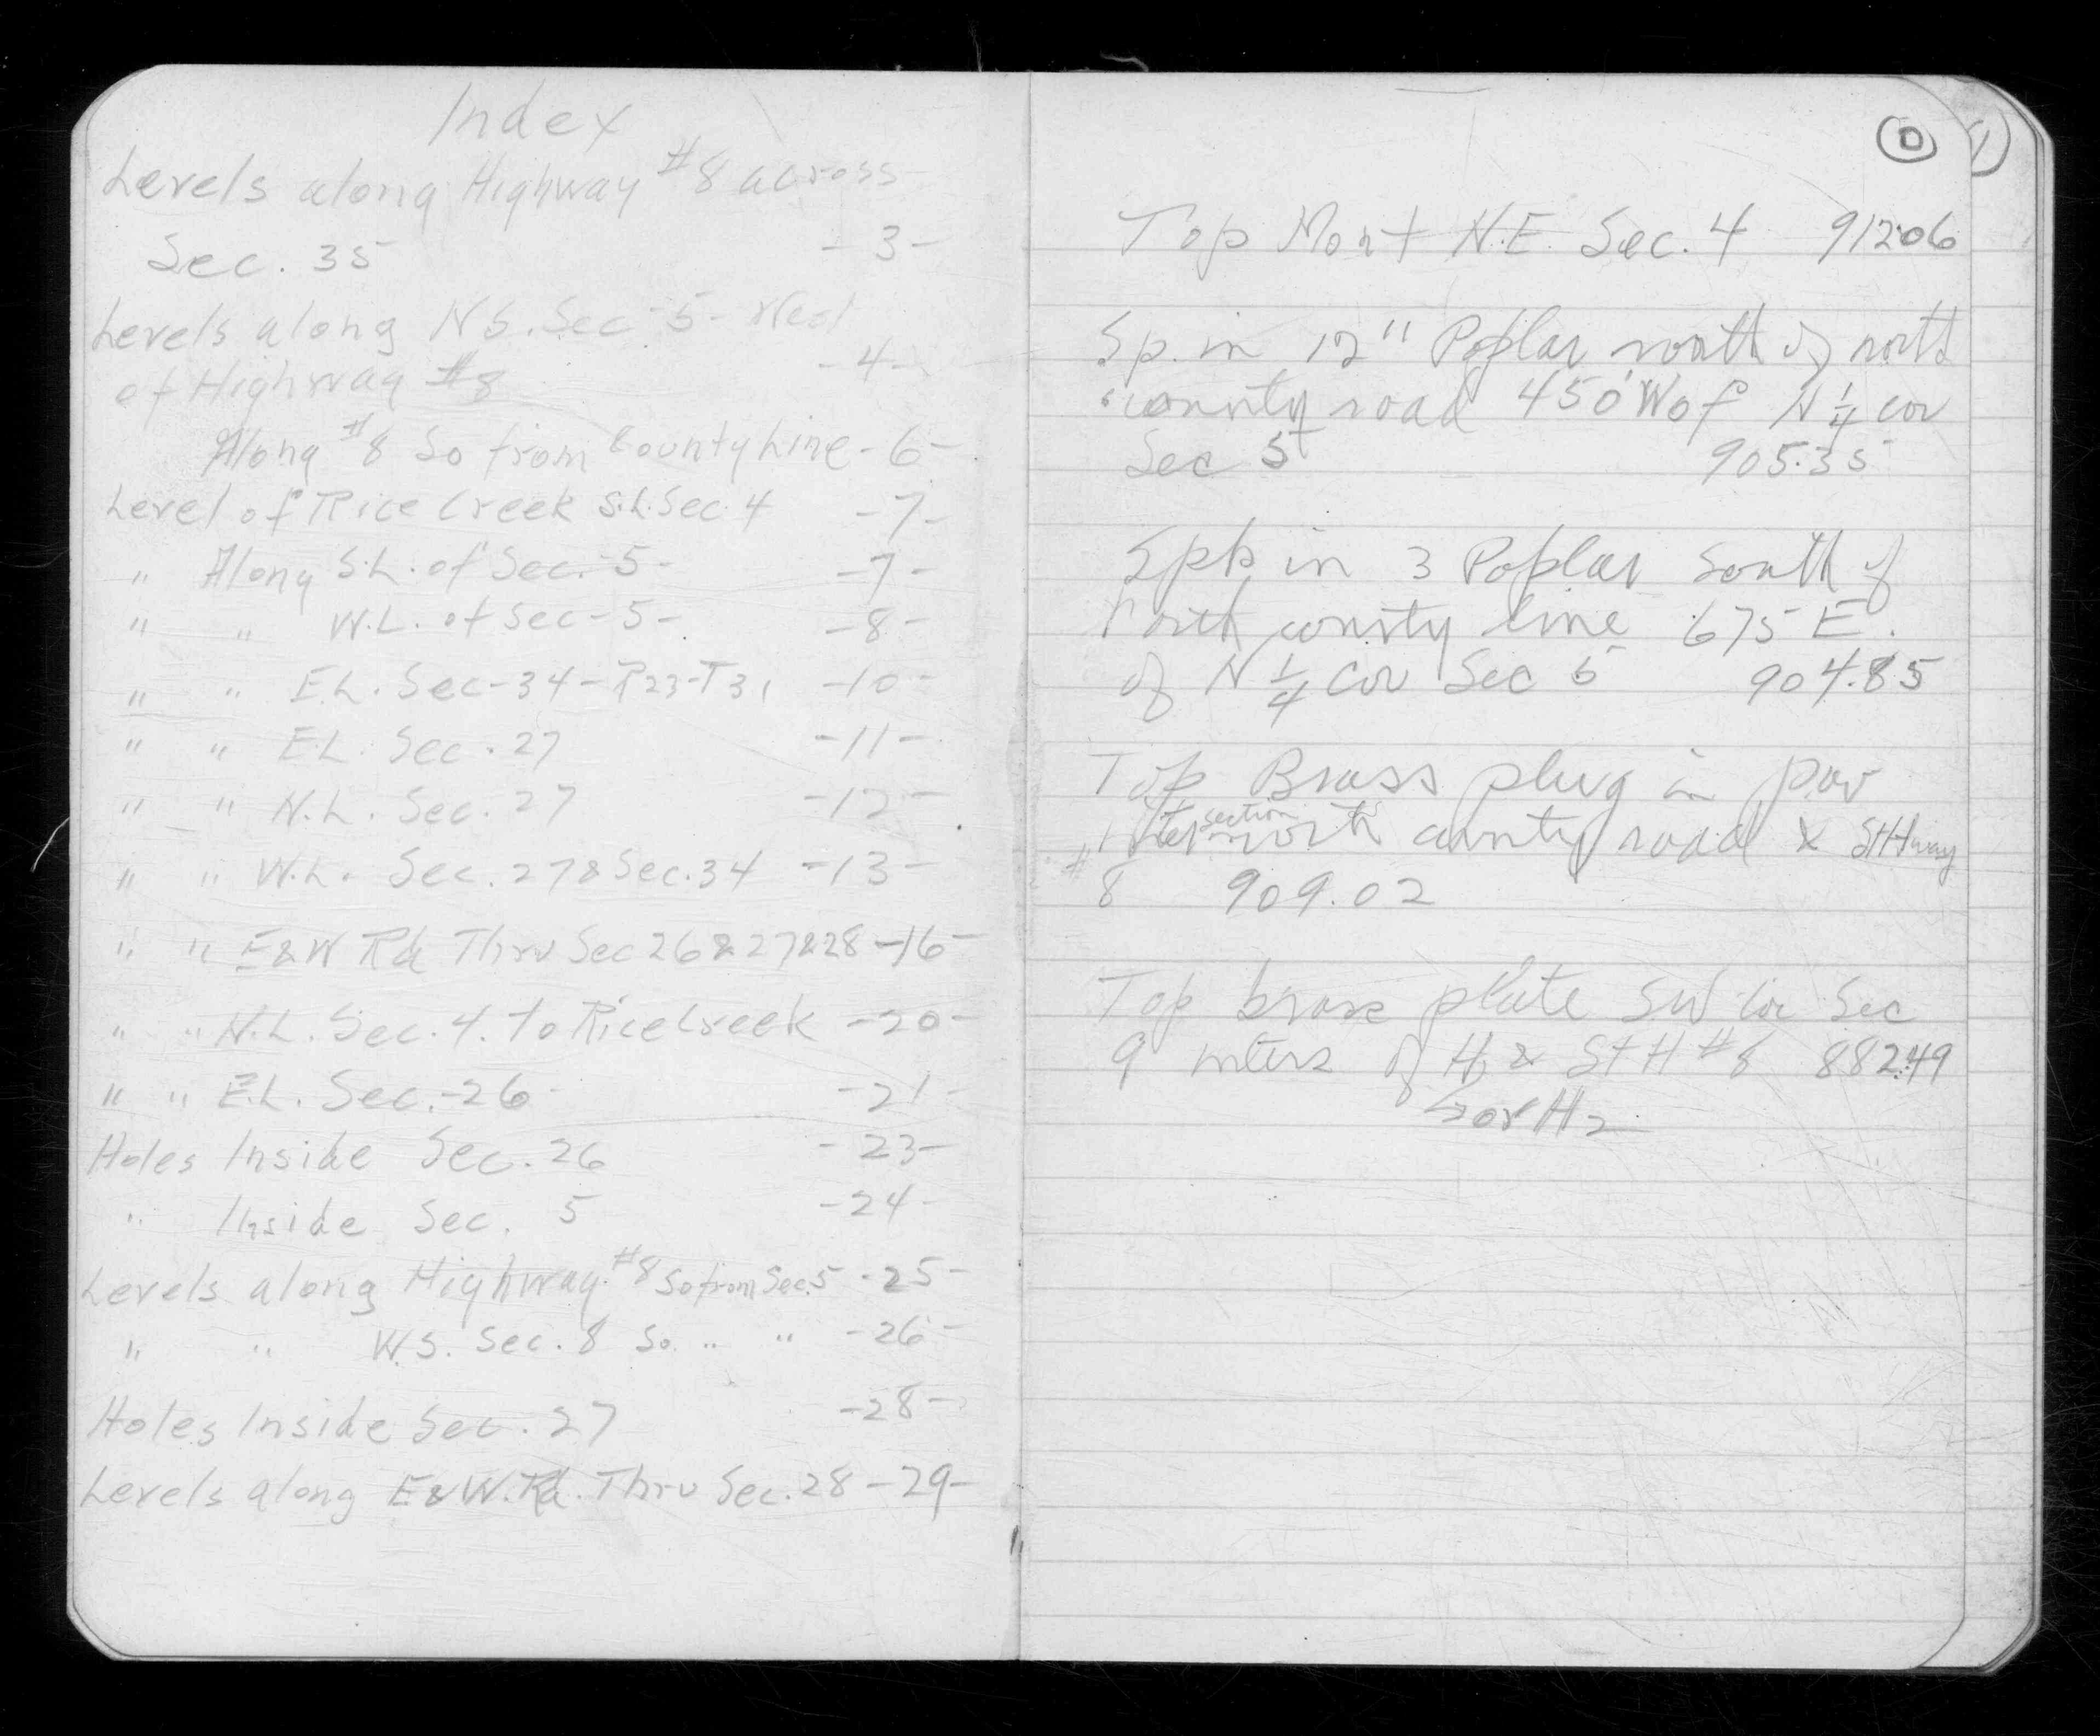 Index
Levels along Highway #8 across
Sec. 35 -3-
Levels along N.S. Sec-5- West
of Highway #8 -4-
Along #8 So from County Line -6-
Level of Rice Creek S.L. Sec. 4 -7-
" Along S.L. of Sec.-5- -7-
" " W.L. of Sec-5- -8-
" " E.L. Sec-34-R23-T31 -10-
" " E.L. Sec. 27 -11-
" " N.L. Sec. 27 -12-
" " W.L. Sec. 27 & Sec. 34 -13-
" " E&W Rd Thru Sec 26 & 27 & 28 -16-
" " N.L. Sec. 4. to Rice Creek -20-
" " E.L. Sec.-26 -21-
Holes Inside Sec. 26 -23-
" Inside Sec. 5 -24-
Levels along Highway #8 So from Sec. 5 -25-
" " W.S. Sec. 8 So. " " -26-
Holes Inside Sec. 27 -28-
Levels along E&W. Rd. Thru Sec. 28 -29-
0
1
Top Mont N.E. Sec. 4 912.06
Sp. in 12" Poplar south of north
county road 450' W of N 1/4 cor
Sec 5 905.35
Spk in 3 Poplar South of
north county line 675 E.
of N 1/4 Cor Sec 5 904.85
Top Brass plug in pav
intersection north county road & St Hway
#8 909.02
Top brass plate SW Cor Sec
9 inters of H, & St H #8 882.49
→ or H2